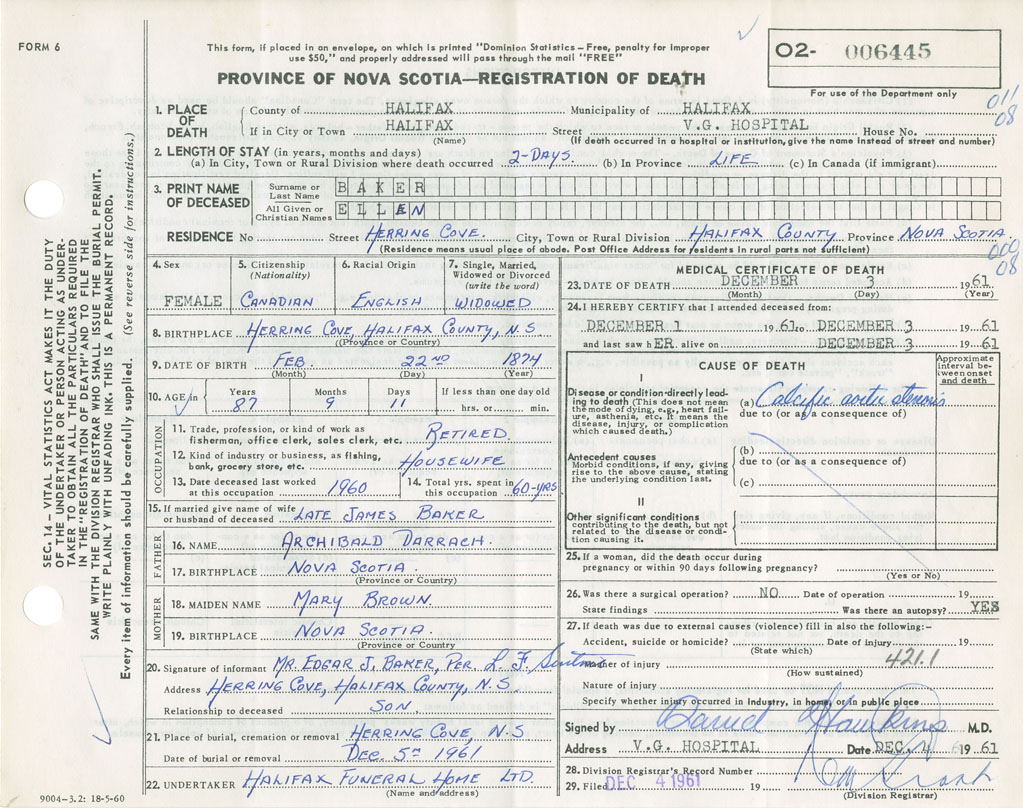 FORM 6
This form, if placed in an envelope, on which is printed "Dominion Statistics – Free, penalty for improper
use $50," and properly addressed will pass through the mail "FREE"
PROVINCE OF NOVA SCOTIA—REGISTRATION OF DEATH
O2- 006445
For use of the Department only
011
08
1. PLACE OF DEATH
County of HALIFAX Municipality of HALIFAX
If in City or Town HALIFAX Street V.G. HOSPITAL House No.
(Name) (If death occurred in a hospital or institution, give the name instead of street and number)
2. LENGTH OF STAY (in years, months and days)
(a) In City, Town or Rural Division where death occurred 2-DAYS. (b) In Province LIFE (c) In Canada (if immigrant)
3. PRINT NAME OF DECEASED
Surname or Last Name BAKER
All Given or Christian Names ELLEN
RESIDENCE No Street HERRING COVE. City, Town or Rural Division HALIFAX COUNTY Province NOVA SCOTIA.
(Residence means usual place of abode. Post Office Address for residents in rural parts not sufficient)
000
08
4. Sex FEMALE
5. Citizenship (Nationality) CANADIAN
6. Racial Origin ENGLISH
7. Single, Married, Widowed or Divorced (write the word) WIDOWED
8. BIRTHPLACE HERRING COVE, HALIFAX COUNTY, N.S
(Province or Country)
9. DATE OF BIRTH FEB. 22ND 1874
(Month) (Day) (Year)
10. AGE in Years 87 Months 9 Days 11 If less than one day old hrs. or min.
OCCUPATION
11. Trade, profession, or kind of work as fisherman, office clerk, sales clerk, etc. RETIRED
12. Kind of industry or business, as fishing, bank, grocery store, etc. HOUSEWIFE
13. Date deceased last worked at this occupation 1960
14. Total yrs. spent in this occupation 60-YRS
15. If married give name of wife or husband of deceased LATE JAMES BAKER
FATHER
16. NAME ARCHIBALD DARRACH.
17. BIRTHPLACE NOVA SCOTIA
(Province or Country)
MOTHER
18. MAIDEN NAME MARY BROWN.
19. BIRTHPLACE NOVA SCOTIA.
(Province or Country
20. Signature of informant MR. EDGAR J. BAKER, PER. L. F.
Address HERRING COVE, HALIFAX COUNTY, N.S.
Relationship to deceased SON.
21. Place of burial, cremation or removal HERRING COVE, N.S
Date of burial or removal DEC. 5TH 1961
22. UNDERTAKER HALIFAX FUNERAL HOME LTD.
(Name and address)
MEDICAL CERTIFICATE OF DEATH
23. DATE OF DEATH DECEMBER 3 19 61
(Month) (Day) (Year)
24. I HEREBY CERTIFY that I attended deceased from:
DECEMBER 1 19 61 to DECEMBER 3 19 61
and last saw hER alive on DECEMBER 3 19 61
CAUSE OF DEATH
Approximate interval between onset and death
I
Disease or condition directly leading to death (This does not mean the mode of dying, e.g., heart failure, asthenia, etc. It means the disease, injury, or complication which caused death.)
(a) Calcific aortic stenosis
due to (or as a consequence of)
Antecedent causes
Morbid conditions, if any, giving rise to the above cause, stating the underlying condition last.
(b)
due to (or as a consequence of)
(c)
II
Other significant conditions
contributing to the death, but not related to the disease or condition causing it.
25. If a woman, did the death occur during pregnancy or within 90 days following pregnancy?
(Yes or No)
26. Was there a surgical operation? NO Date of operation 19
State findings Was there an autopsy? YES
27. If death was due to external causes (violence) fill in also the following:-
Accident, suicide or homicide? Date of injury 19
(State which)
Manner of injury 421.1
(How sustained)
Nature of injury
Specify whether injury occurred in Industry, in home, or in public place
Signed by Daniel Hawkins M.D.
Address V.G. HOSPITAL Date DEC. 4 19 61
28. Division Registrar's Record Number
29. Filed DEC 4 1961 19
(Division Registrar)
SEC. 14 – VITAL STATISTICS ACT MAKES IT THE DUTY
OF THE UNDERTAKER OR PERSON ACTING AS UNDERTAKER
TO OBTAIN ALL THE PARTICULARS REQUIRED
IN THE "REGISTRATION OF DEATH" AND TO FILE THE
SAME WITH THE DIVISION REGISTRAR WHO SHALL ISSUE THE BURIAL PERMIT.
WRITE PLAINLY WITH UNFADING INK. THIS IS A PERMANENT RECORD.
Every item of information should be carefully supplied. (See reverse side for instructions.)
9004-3.2: 18-5-60